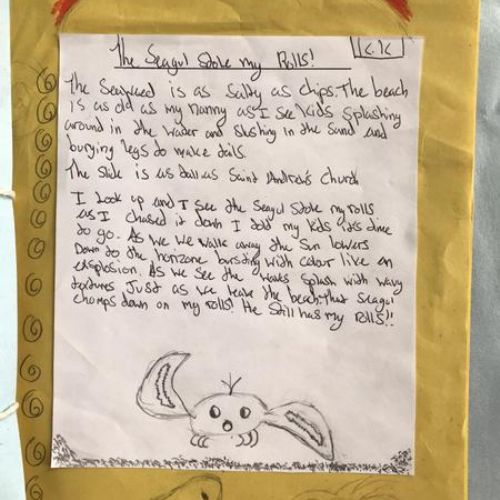 The Seagul Stole my Rolls!
The Seaweed is as Salty as chips. The beach
is as old as my Nanny as I see kids Splashing
around in the Water and Slushing in the Sand and
burying legs to make tails.
The Slide is as tall as Saint Andrew's Church
I Look up and I see the Seagul Stole my rolls
as I chased it down I told my kids it's time
to go. As we we walk away the Sun lowers
Down to the horizone bursting with colour like an
exsplosion. As we see the waves Splash with wavy
textures Just as we leave the beach that Seagul
chomps down on my rolls! He Still has my rolls!!